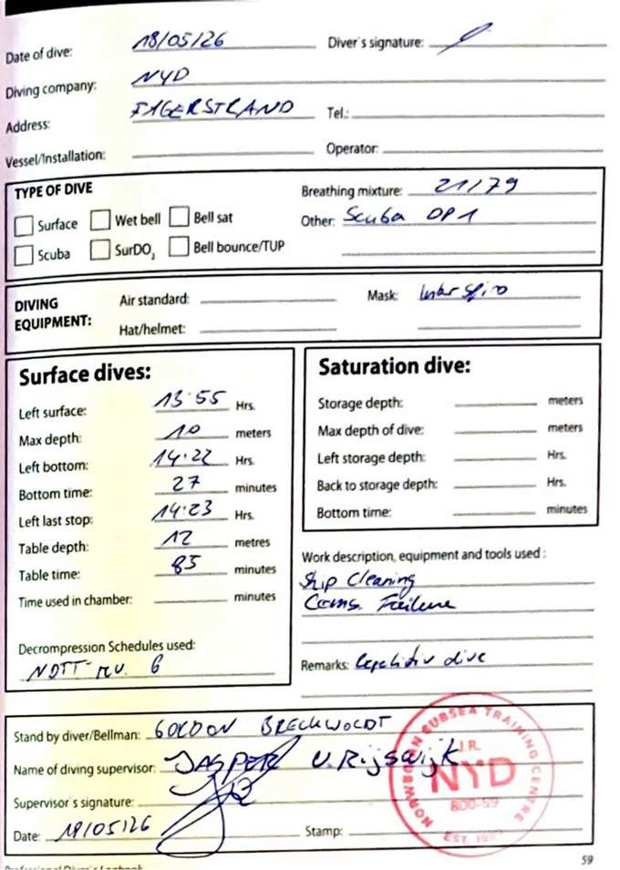 Date of dive: 18/05/26 Diver's signature:
Diving company: NYD
Address: FAGERSTRAND Tel.:
Vessel/Installation: Operator:
TYPE OF DIVE
Breathing mixture: 21/79
Surface Wet bell Bell sat
Other: Scuba OP1
Scuba SurDO₂ Bell bounce/TUP
DIVING EQUIPMENT:
Air standard: Mask: Inter Spiro
Hat/helmet:
Surface dives:
Left surface: 13:55 Hrs.
Max depth: 10 meters
Left bottom: 14:22 Hrs.
Bottom time: 27 minutes
Left last stop: 14:23 Hrs.
Table depth: 12 metres
Table time: 85 minutes
Time used in chamber: minutes
Decrompression Schedules used:
NDTT- rev. 6
Saturation dive:
Storage depth: meters
Max depth of dive: meters
Left storage depth: Hrs.
Back to storage depth: Hrs.
Bottom time: minutes
Work description, equipment and tools used :
Ship Cleaning
Coms. Failure
Remarks: repetitiv dive
Stand by diver/Bellman: GORDON BRECKWOLDT
Name of diving supervisor: JASPER v. Rijswijk
Supervisor's signature:
Date: 18/05/26 Stamp:
NORWEGIAN SUBSEA TRAINING CENTRE
J.R.
NYD
Professional Diver's Logbook
59